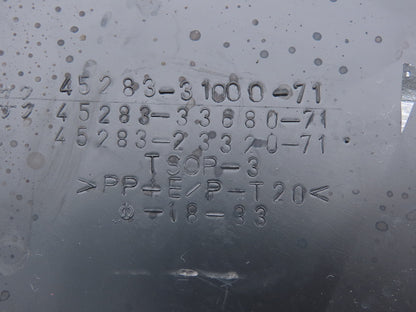 45283-31000-71
45283-33680-71
45283-23320-71
TSOP-3
>PP+E/P-T20<
-18-83